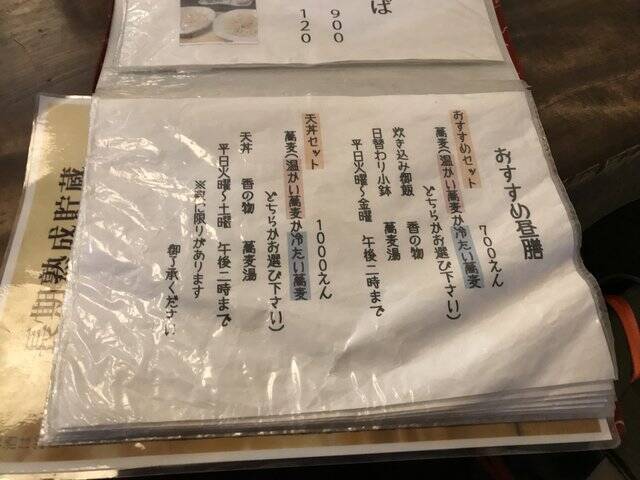 ば
900
120
おすすめ昼膳
おすすめセット 700えん
蕎麦(温かい蕎麦か冷たい蕎麦
どちらかお選び下さい)
炊き込み御飯 香の物
日替わり小鉢 蕎麦湯
平日火曜~金曜 午後二時まで
天丼セット 1000えん
蕎麦(温かい蕎麦か冷たい蕎麦
どちらかお選び下さい)
天丼 香の物 蕎麦湯
平日火曜~土曜 午後二時まで
※数に限りがあります
御了承ください
長期熟成貯蔵